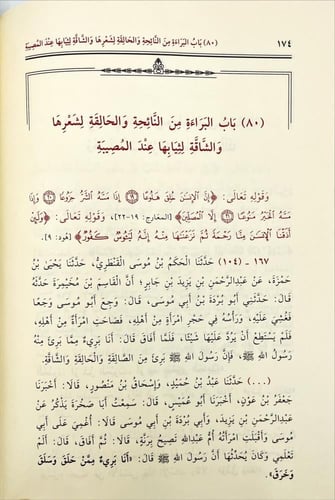 ١٧٤
(٨٠) بَابُ البَرَاءَةِ مِنَ النَّائِحَةِ وَالحَالِقَةِ لِشَعْرِهَا وَالشَّاقَّةِ لِثِيَابِهَا عِنْدَ المُصِيبَةِ
(٨٠) بَابُ البَرَاءَةِ مِنَ النَّائِحَةِ وَالحَالِقَةِ لِشَعْرِهَا
وَالشَّاقَّةِ لِثِيَابِهَا عِنْدَ المُصِيبَةِ
وَقَوْلِهِ تَعَالَى: ﴿إِنَّ الْإِنسَانَ خُلِقَ هَلُوعًا ١٩ إِذَا مَسَّهُ الشَّرُّ جَزُوعًا ٢٠ وَإِذَا
مَسَّهُ الْخَيْرُ مَنُوعًا ٢١ إِلَّا الْمُصَلِّينَ﴾ [المعارج: ١٩-٢٢]، وَقَوْلِهِ تَعَالَى: ﴿وَلَئِنْ
أَذَقْنَا الْإِنسَانَ مِنَّا رَحْمَةً ثُمَّ نَزَعْنَاهَا مِنْهُ إِنَّهُ لَيَئُوسٌ كَفُورٌ﴾ [هود: ٩].
١٦٧ - (١٠٤) حَدَّثَنَا الْحَكَمُ بْنُ مُوسَى القَنْطَرِيُّ، حَدَّثَنَا يَحْيَى بْنُ
حَمْزَةَ، عَنْ عَبْدِالرَّحْمَنِ بْنِ يَزِيدَ بْنِ جَابِرٍ؛ أَنَّ الْقَاسِمَ بْنَ مُخَيْمِرَةَ حَدَّثَهُ
قَالَ: حَدَّثَنِي أَبُو بُرْدَةَ بْنُ أَبِي مُوسَى، قَالَ: وَجِعَ أَبُو مُوسَى وَجَعًا
فَغُشِيَ عَلَيْهِ، وَرَأْسُهُ فِي حَجْرِ امْرَأَةٍ مِنْ أَهْلِهِ، فَصَاحَتِ امْرَأَةٌ مِنْ أَهْلِهِ،
فَلَمْ يَسْتَطِعْ أَنْ يَرُدَّ عَلَيْهَا شَيْئًا، فَلَمَّا أَفَاقَ قَالَ: أَنَا بَرِيءٌ مِمَّا بَرِئَ مِنْهُ
رَسُولُ اللهِ ﷺ، فَإِنَّ رَسُولَ اللهِ ﷺ بَرِئَ مِنَ الصَّالِقَةِ وَالْحَالِقَةِ وَالشَّاقَّةِ.
(...) حَدَّثَنَا عَبْدُ بْنُ حُمَيْدٍ، وَإِسْحَاقُ بْنُ مَنْصُورٍ، قَالَا: أَخْبَرَنَا
جَعْفَرُ بْنُ عَوْنٍ، أَخْبَرَنَا أَبُو عُمَيْسٍ، قَالَ: سَمِعْتُ أَبَا صَخْرَةَ يَذْكُرُ عَنْ
عَبْدِالرَّحْمَنِ بْنِ يَزِيدَ، وَأَبِي بُرْدَةَ بْنِ أَبِي مُوسَى قَالَا: أُغْمِيَ عَلَى أَبِي
مُوسَى وَأَقْبَلَتِ امْرَأَتُهُ أُمُّ عَبْدِاللهِ تَصِيحُ بِرَنَّةٍ، قَالَا: ثُمَّ أَفَاقَ، قَالَ: أَلَمْ
تَعْلَمِي وَكَانَ يُحَدِّثُهَا أَنَّ رَسُولَ اللهِ ﷺ قَالَ: «أَنَا بَرِيءٌ مِمَّنْ حَلَقَ وَسَلَقَ
وَخَرَقَ».